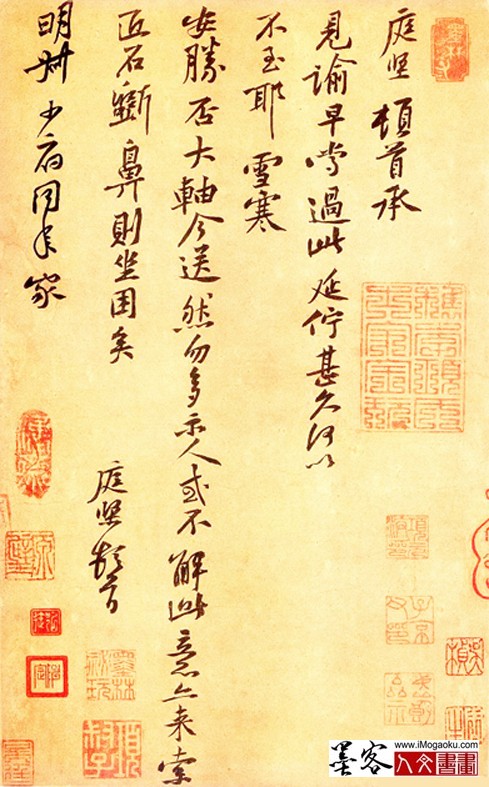 庭堅頓首承
見諭早嘗過此延佇甚久何以
不至耶雪寒
安勝否大軸今送然勿多示人或不解此意亦来索
匠石斲鼻則坐困矣
庭堅頓首
明叔少府同年家
墨林
秘玩
墨客
www.iMogaoku.com
人文書畫